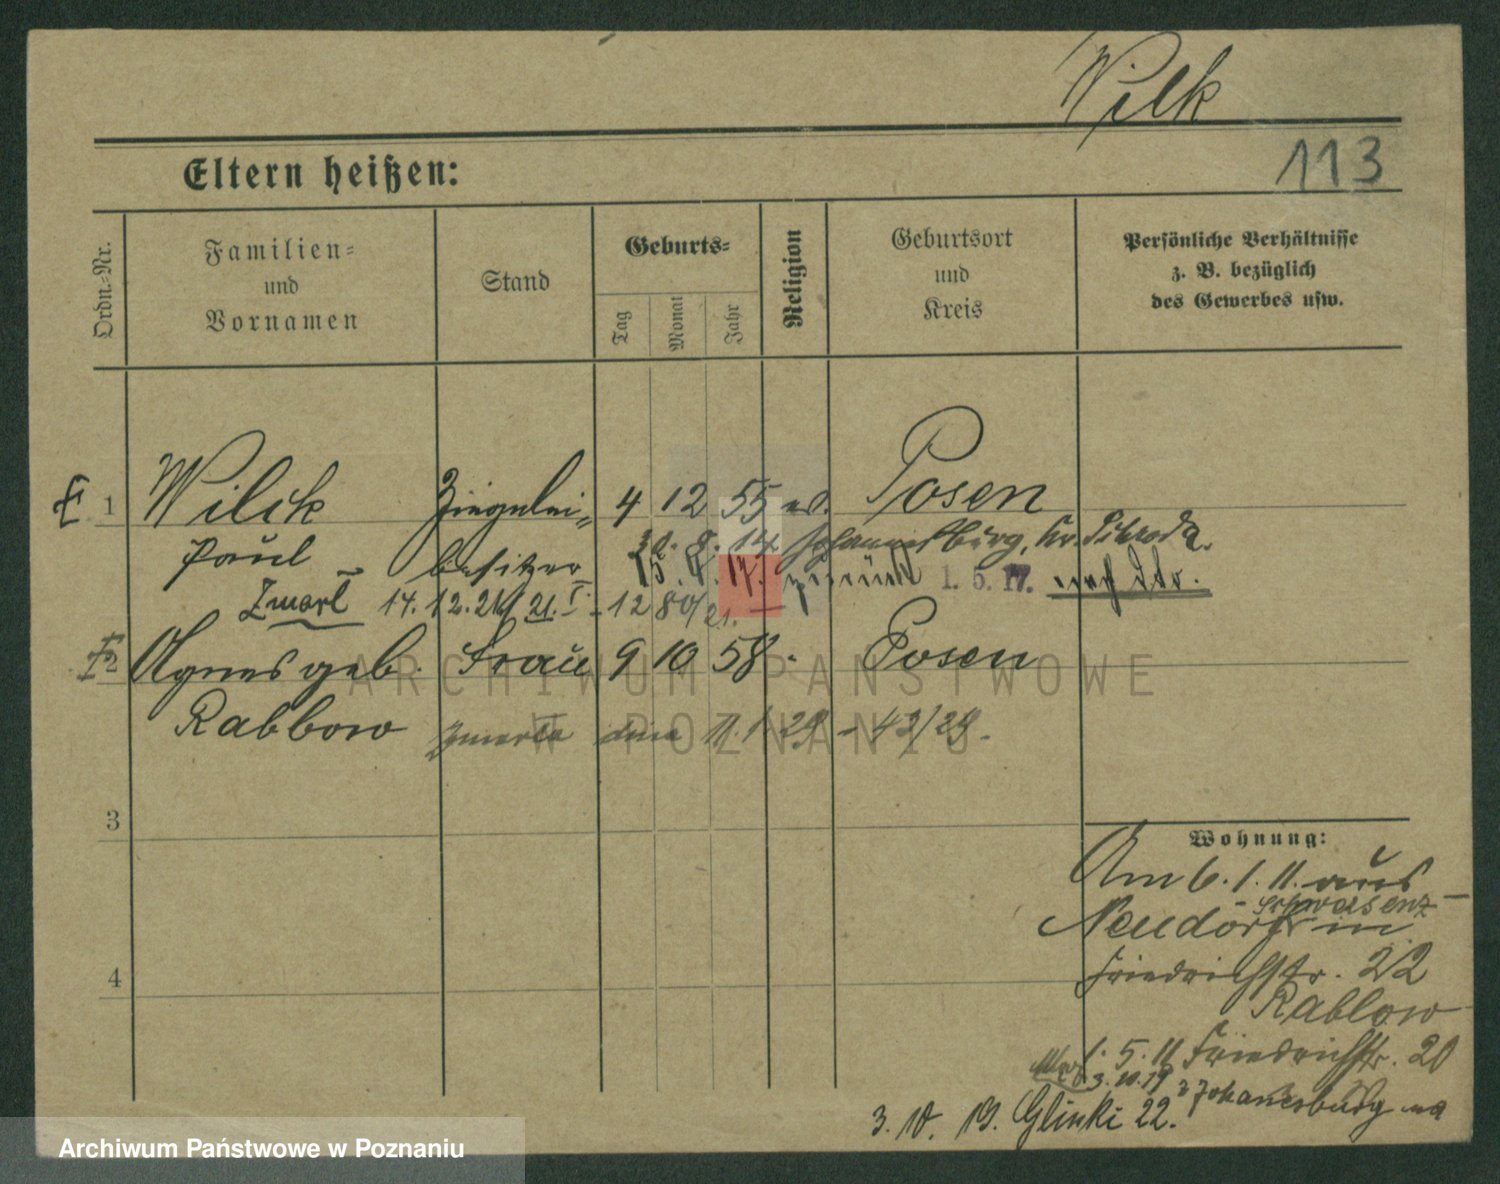 Wilk
113
Eltern heißen:
Ordn.-Nr.
Familien-
und
Vornamen
Stand
Geburts-
Tag
Monat
Jahr
Religion
Geburtsort
und
Kreis
Persönliche Verhältnisse
z. B. bezüglich
des Gewerbes usw.
1 Wilck Ziegelei- 4 12 55 ev. Posen
Paul besitzer
30. 8. 14 Johannesburg, Kr. Schroda.
15. 4. 17. zurück 1. 5. 17. nach
Zmarł 14. 12. 21. 80/21.
2 Agnes geb. Frau 9 10 58 Posen
Rabbow zmarła dnia 11. 1 29 - 43/29.
3
4
Wohnung:
Am 6. 1. 11. aus
Schwersenz
Neudorf in
Friedrichstr. 22
Rabbow
1. 5. 11 Friedrichstr. 20
3. 10. 19 z Johanesburg na
3. 10. 19. Glinki 22.
ARCHIWUM PAŃSTWOWE
W POZNANIU
Archiwum Państwowe w Poznaniu